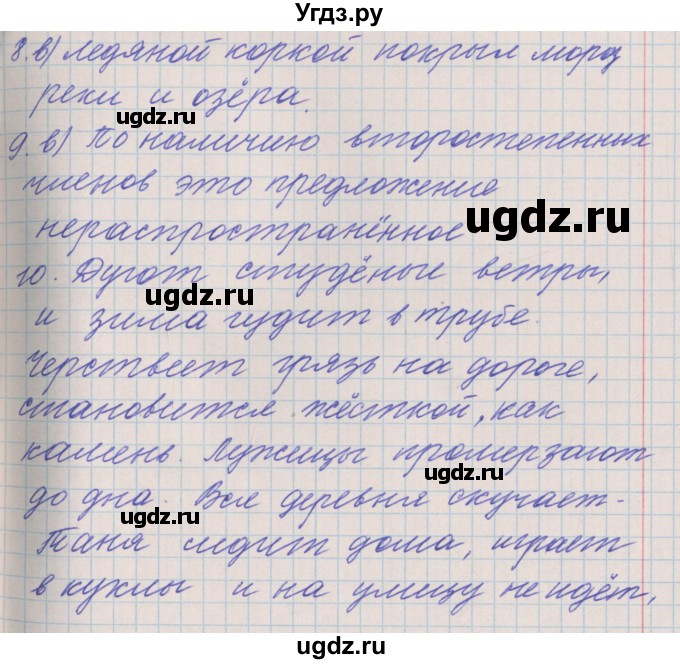 Угдз.ру
8. в) Ледяной коркой покрыл мороз
реки и озёра.
9. в) По наличию второстепенных
членов это предложение
нераспространённое
ugdz.ru
10. Дуют студёные ветры,
ugdz.ru
и зима гудит в трубе.
Черствеет грязь на дороге,
становится жёсткой, как
камень. Лужицы промерзают
ugdz.ru
до дна. Вся деревня скучает.
ugdz.ru
Таня сидит дома, играет
в куклы и на улицу не идёт,
ugdz.ru